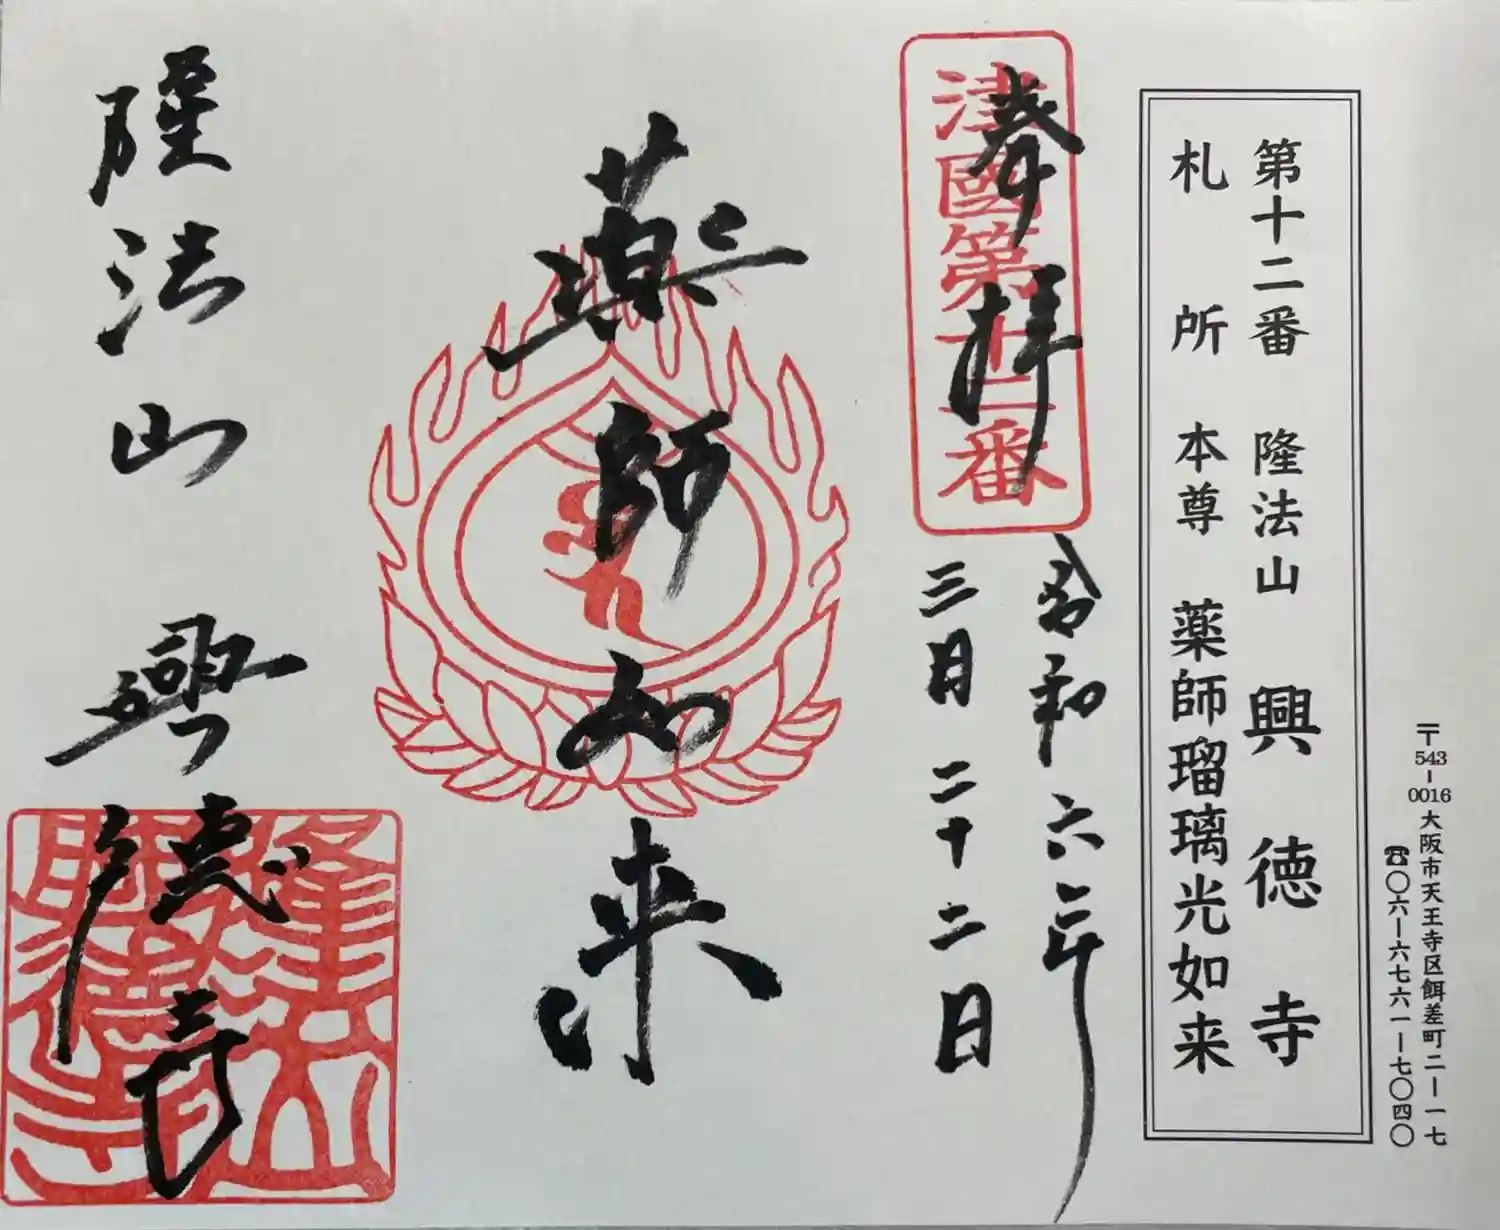 〒543-0016大阪市天王寺区餌差町二ー一七
☎〇六ー六七六一ー七〇四〇
第十二番 隆法山 興徳寺
札所 本尊 薬師瑠璃光如来
奉拝
津國第十二番
令和六年
三月二十二日
薬師如来
隆法山 興徳寺
隆法山
興徳寺